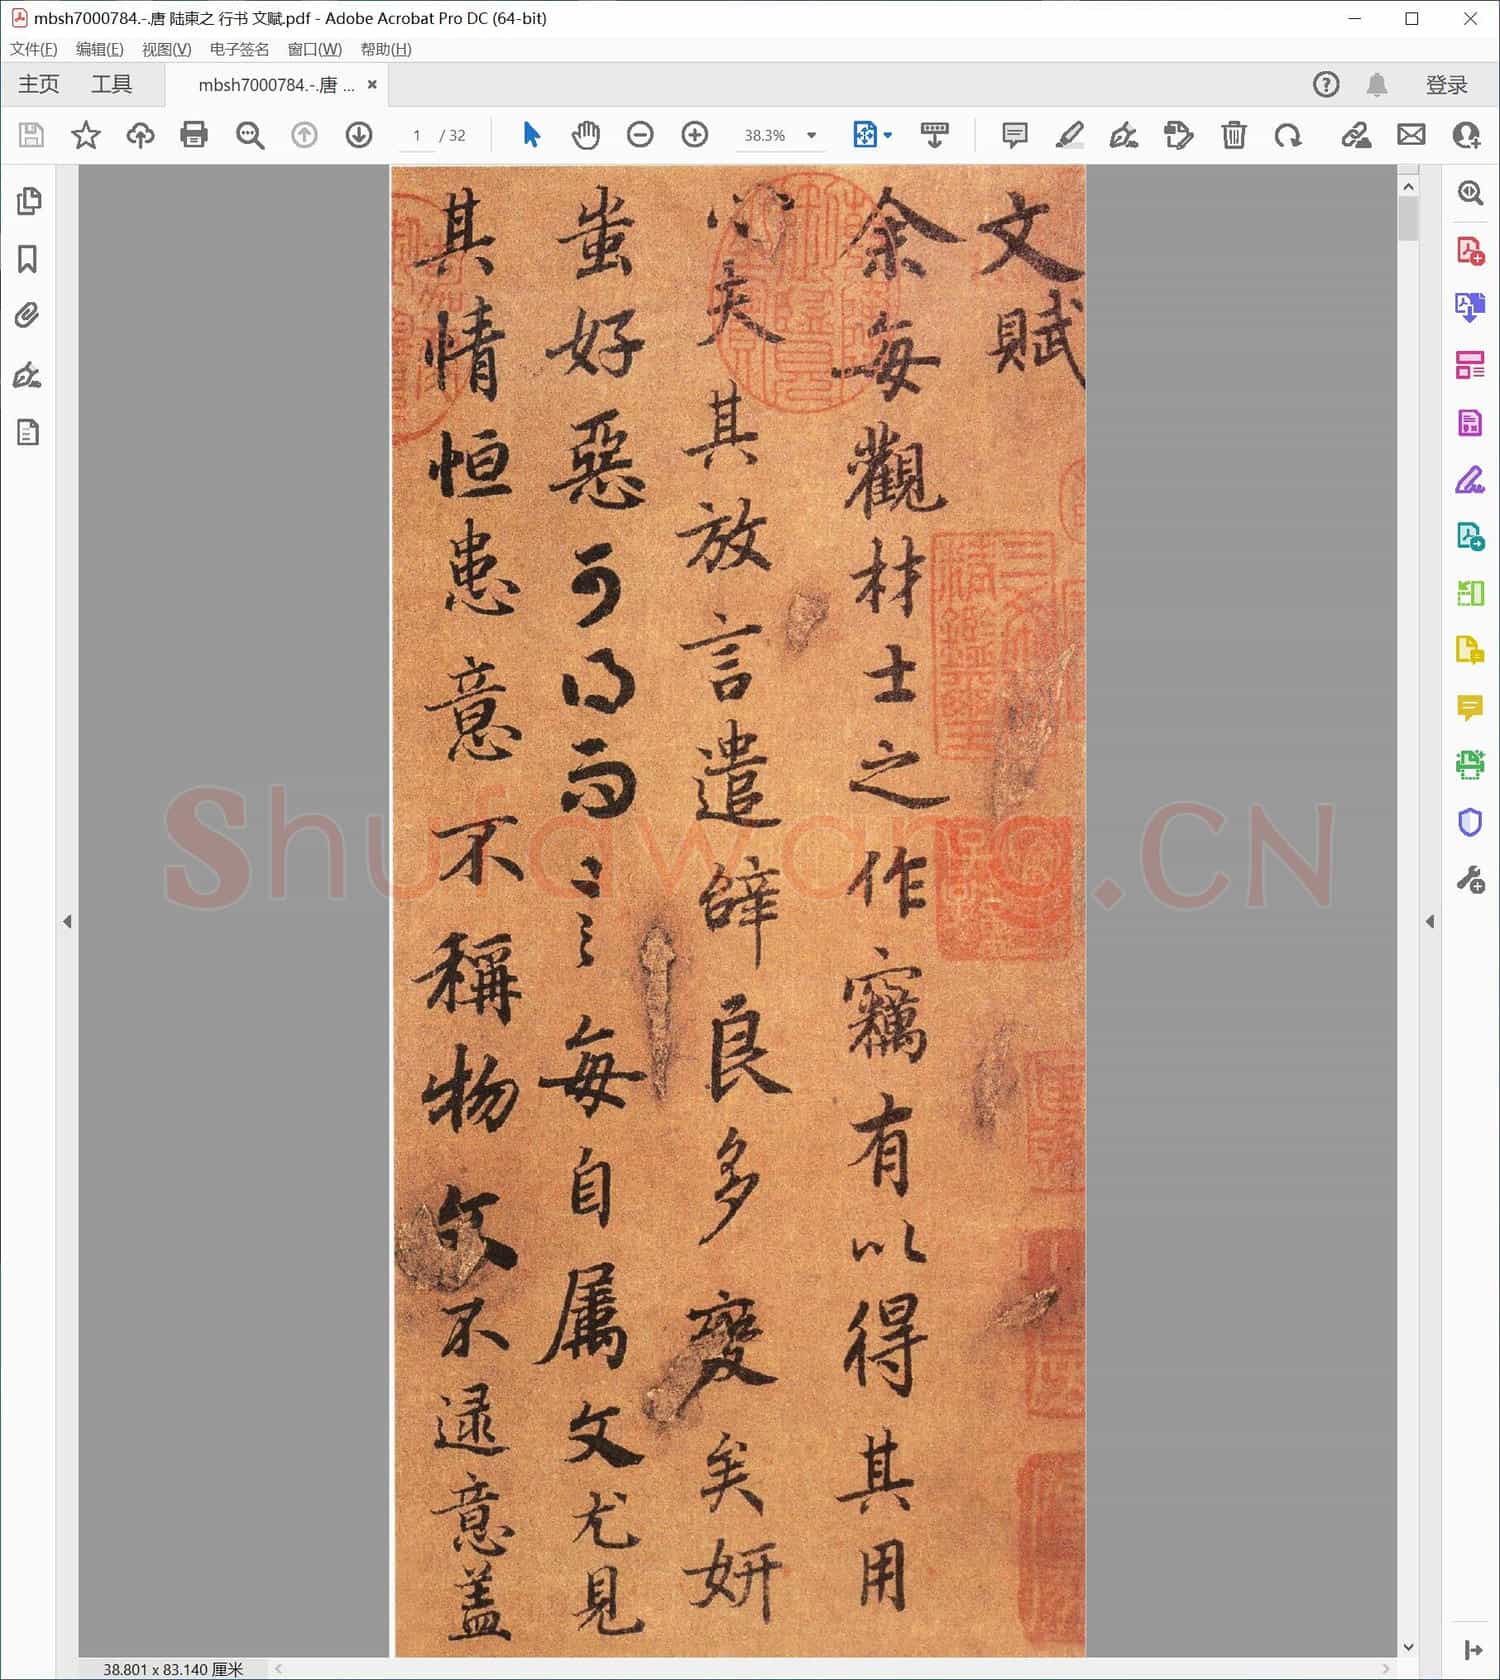 mbsh7000784.-.唐 陆柬之 行书 文赋.pdf - Adobe Acrobat Pro DC (64-bit)
文件(F) 编辑(E) 视图(V) 电子签名 窗口(W) 帮助(H)
主页 工具 mbsh7000784.-.唐 ... 登录
1 / 32 38.3%
文賦
余每觀材士之作竊有以得其用
心夫其放言遣辤良多變矣妍
蚩好惡可得而言每自属文尤見
其情恒患意不稱物文不逮意盖
Shufawang.CN
38.801 x 83.140 厘米